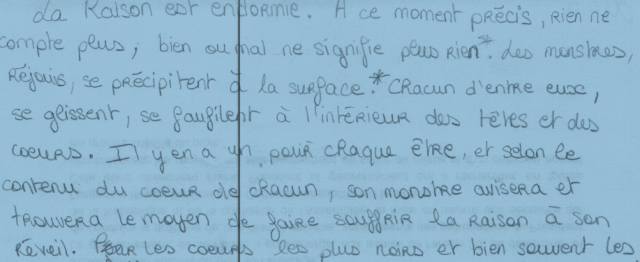 La Raison est endormie. A ce moment précis, rien ne
compte plus, bien ou mal ne signifie plus rien*. Les monstres,
Réjouis, se précipitent à la surface.* Chacun d'entre eux,
se glissent, se faufilent à l'intérieur des têtes et des
coeurs. Il y en a un pour chaque être, et selon le
contenu du coeur de chacun, son monstre avisera et
trouvera le moyen de faire souffrir la raison à son
réveil. Pour les coeurs les plus noirs et bien souvent les